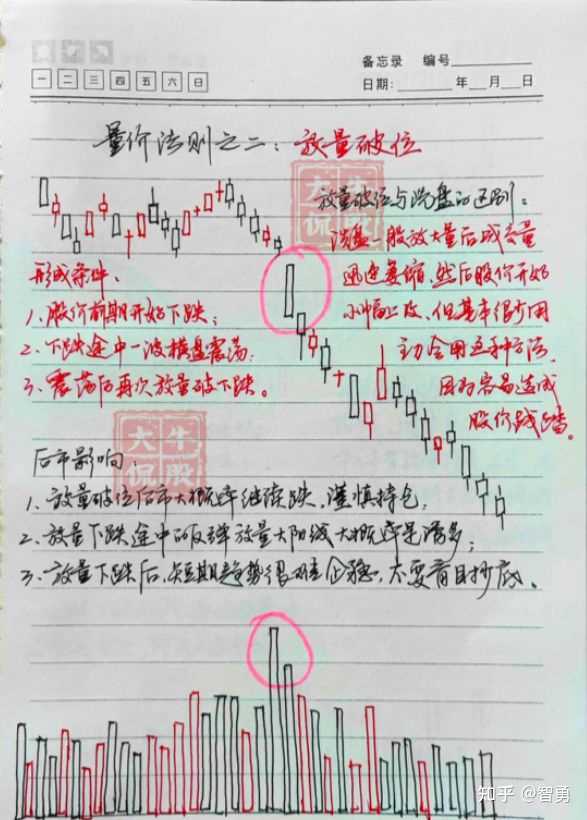 备忘录 编号
一 二 三 四 五 六 日
日期: 年 月 日
量价法则之二：放量破位
大牛
侃股
放量破位与洗盘的区别：
洗盘一般放大量后成交量
迅速萎缩，然后股价开始
小幅上攻，但基本很少用
主力会用这种方法，
因为容易造成
股价践踏。
形成条件：
1、股价前期开始下跌；
2、下跌途中一波横盘震荡；
3、震荡后再次放量破下跌。
大牛
侃股
后市影响：
1、放量破位后市大概率继续跌，谨慎持仓；
2、放量下跌途中的反弹放量大阳线大概率是诱多；
3、放量下跌后，短期趋势很难企稳，不要盲目抄底。
知乎 @智勇